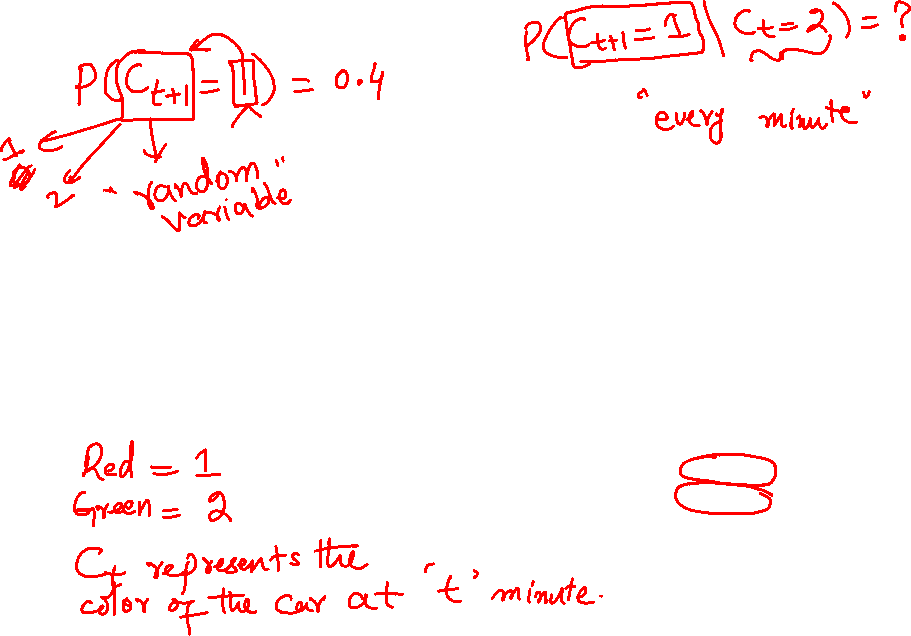 P(C_{t+1} = 1) = 0.4
1
2
"random
variable"
P(C_{t+1} = 1 | C_t = 2) = ?
"every minute"
Red = 1
Green = 2
C_t represents the
color of the car at 't' minute.